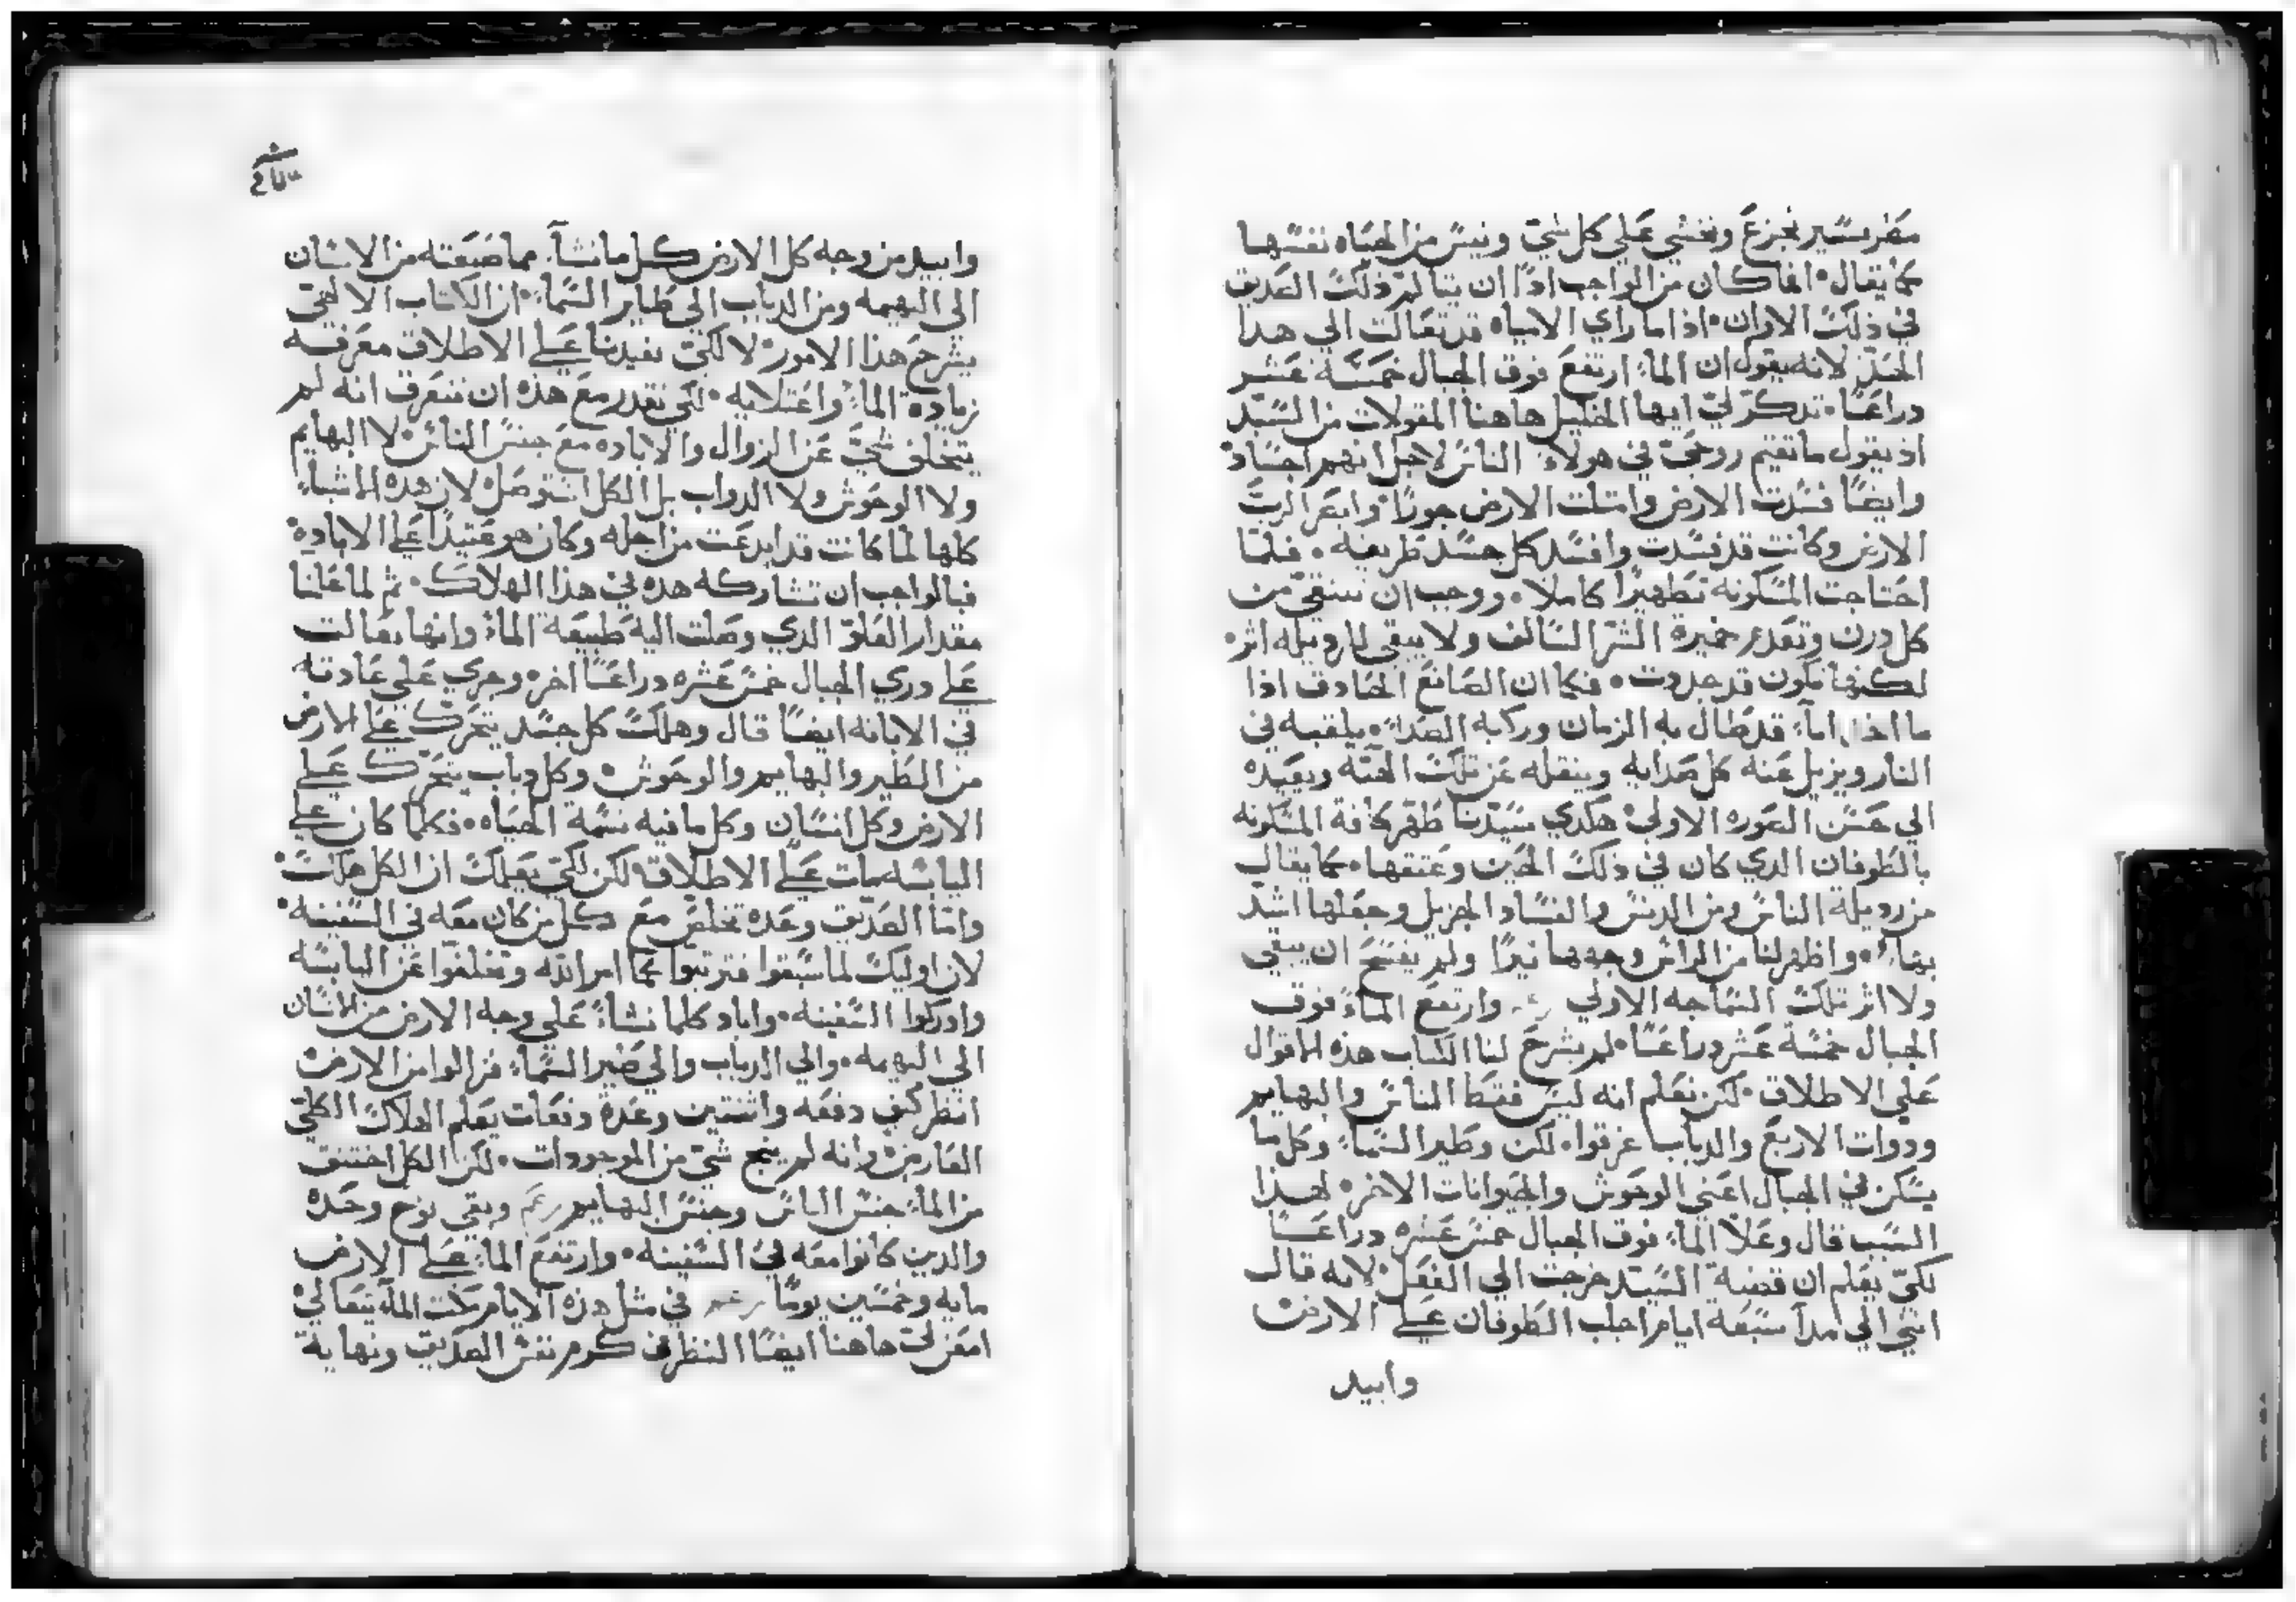 مضر يسير نجزع ونخشي علي كل شي ونيس من الحياه نفسها
كما يقال. افما كان من الواجب اداً ان يتالم ذلك الصديق
في ذلك الاوان. اذا ما راي الامياه قد تعالت الي هدا
الحد لانه يقول ان الماء ارتفع فوق الجبال خمسة عشر
دراعاً. تدكر لي ايها الخليل هاهنا المقولات من السيد
اد يقول ما تقيم روحي في هولاء الناس لاجل انهم اجساد
وايضاً فسدت الارض وامتلت الارض جوراً. وابصر الرب
الارض وكانت قد فسدت وافسد كل جسد طريقه. فلما
احتاجت المسكونه تطهيراً كاملاً. ووجب ان تتنقي من
كل درن وتعدم خميرة الشر السالف ولا يبقي للرديله اثر.
لكنها تكون قد جددت. فكما ان الصانع الحادق اذا
ما اخذ اماء قد طال به الزمان وركبه الصداء. يلقيه في
النار ويزيل عنه كل صدايه وينقله عن تلك الهيّه ويعيده
الي حسن الصوره الاولي. هكدي سيدنا طهر كافة المسكونه
بالطوفان الدي كان في ذلك الحين وعتقها. كما يقال
من رديلة الناس ومن الدنس والفساد الجزيل وجعلها اشد
بهاء. واظهر لنا من الراس وجهها نيراً ولم يفسح ان يبقي
ولا اثر تلك السماجه الاولي وارتفع الماء فوق
الجبال خمسة عشر دراعاً. لم يشرح لنا الكتاب هذه الاقوال
علي الاطلاق. لكن نعلم انه ليس فقط الناس والبهايم
ودوات الاربع والدباب غرقوا. لكن وطير السماء وكل ما
يسكن في الجبال اعني الوحوش والحيوانات الاخر. لهذا
السبب قال وعلا الماء فوق الجبال خمس عشره دراعاً
لكي يعلم ان قضية السيد خرجت الي الفعل. لانه قال
انني الي مدا سبعة ايام اجلب الطوفان علي الارض
وابيد
وابيد من وجه كل الارض كل ما نشأ مما صنعته من الانسان
الي البهيمه ومن الدباب الي طاير السماء. ان الكتاب الالهي
يشرح هذا الامور. لا لكي يفيدنا علي الاطلاق معرفه
زيادة الماء واعتلايه. لكي نقدر مع هذه ان نتعرف انه لم
يتخلف شي عن الزوال والاباده مع جنس الناس. لا البهايم
ولا الوحوش ولا الدواب بل الكل استوصل. لان هده الاشياء
كلها لما كانت قد ابدعت من اجله وكان هو عتيداً علي الاباده
فبالواجب ان تشاركه هده في هذا الهلاك. ثم لما علنا
مقدار العلو الدي وصلت اليه طبيعة الماء. وانها تعالت
علي دري الجبال خمس عشره دراعاً اخر. وجري علي عادته
في الابانه ايضاً قال وهلك كل جسد يتحرك علي الارض
من الطير والبهايم والوحوش. وكل دباب يتحرك علي
الارض وكل انسان وكل ما فيه نسمة الحياه. فكلما كان علي
اليابسه مات علي الاطلاق. لكن لكي يعلمك ان الكل هلك
واما الصديق وحده تخلص مع كل من كان معه في السفينه.
لان اوليك لما سبقوا فترتبوا كما امر الله وتخلفوا عن اليابسه
وادركوا السفينه. واباد كلما نشاء علي وجه الارض من الانسان
الي البهيمه. والي الدباب والي طير السماء. فزالوا من الارض
انظر كيف دفعه واثنتين وعدة دفعات يعلم الهلاك الكلي
العارض. وانه لم ينج شي من الموجودات. لكن الكل اختنق
من الماء. جنس الناس وجنس البهايم وبقي نوح وحده
والدين كانوا معه في السفينه. وارتفع الماء علي الارض
مايه وخمسين يوماً في مثل هذه الايام مكث الماء يتعالي
امعن لي هاهنا ايضاً النظر في كرم نفس الصديق ونهاية